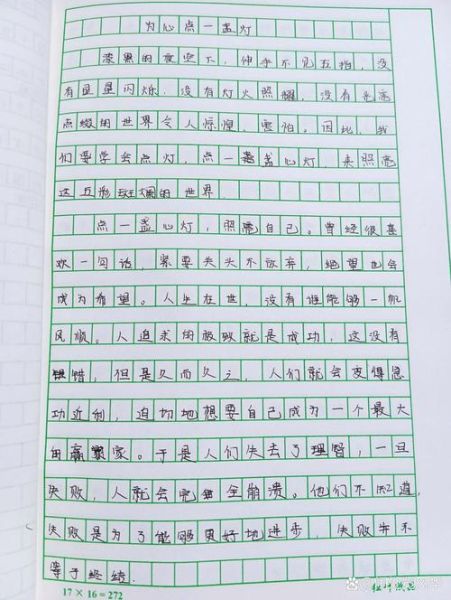 为心点一盏灯
漆黑的夜空下，伸手不见五指，没
有星星闪烁，没有灯火照耀，没有光亮
点缀的世界令人惊惶，害怕。因此，我
们要学会点灯，点一盏心灯，来照亮
这五彩斑斓的世界
点一盏心灯，照亮自己。曾经很喜
欢一句话，紧要关头不放弃，绝望也会
成为希望。人生在世，没有谁能够一帆
风顺。人追求的极致就是成功，这没有
错，但是久而久之，人们就会变得急
功近利，迫切地想要自己成为一个最大
的赢家。于是人们失去了理智，一旦
失败，人就会完全崩溃。他们不知道，
失败是为了能够更好地进步，失败并不
等于终结.
17 × 16 = 272